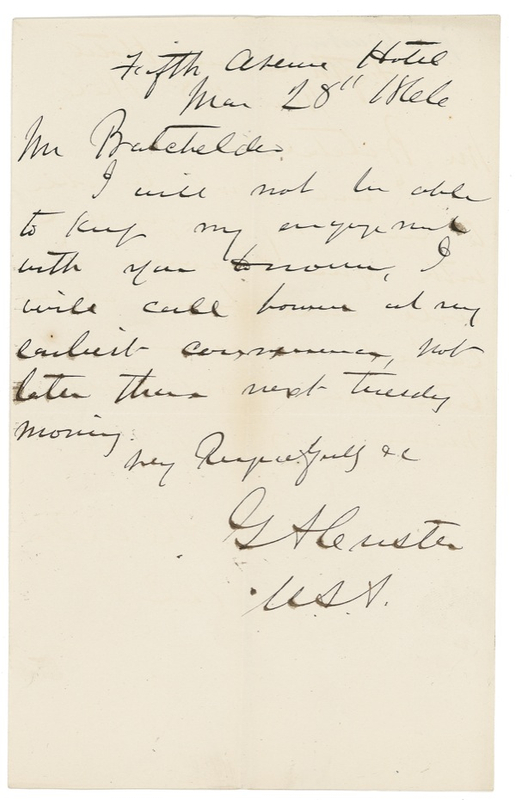 Fifth Avenue Hotel
Mar 28" 1866
Mr Batchelder
I will not be able
to keep my engagement
with you tomorrow, I
will call however at my
earliest convenience, not
later than next Tuesday
morning.
Very Respectfully &c
G A Custer
U.S.A.